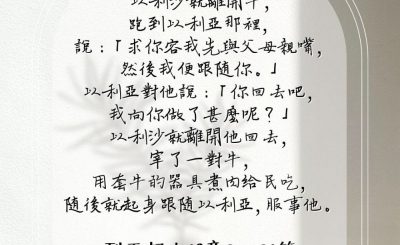 以利沙就離開牛，
跑到以利亞那裡，
說：「求你容我先與父母親嘴，
然後我便跟隨你。」
以利亞對他說：「你回去吧，
我向你做了甚麼呢？」
以利沙就離開他回去，
宰了一對牛，
用套牛的器具煮肉給民吃，
隨後就起身跟隨以利亞，服事他。